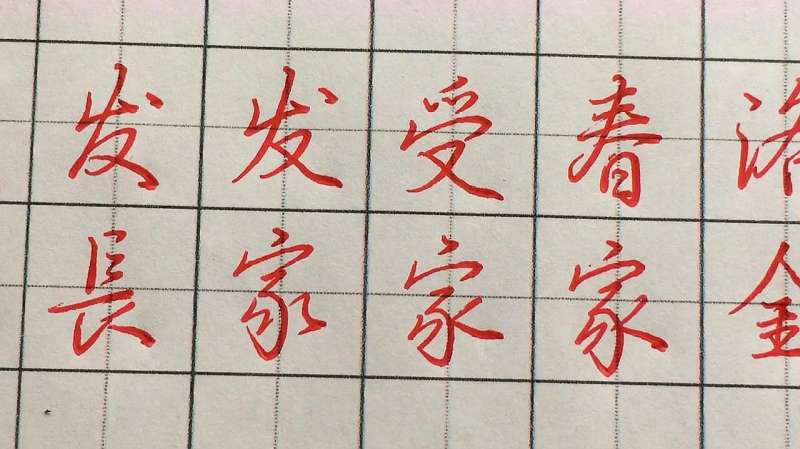 发发受春
長家家家金